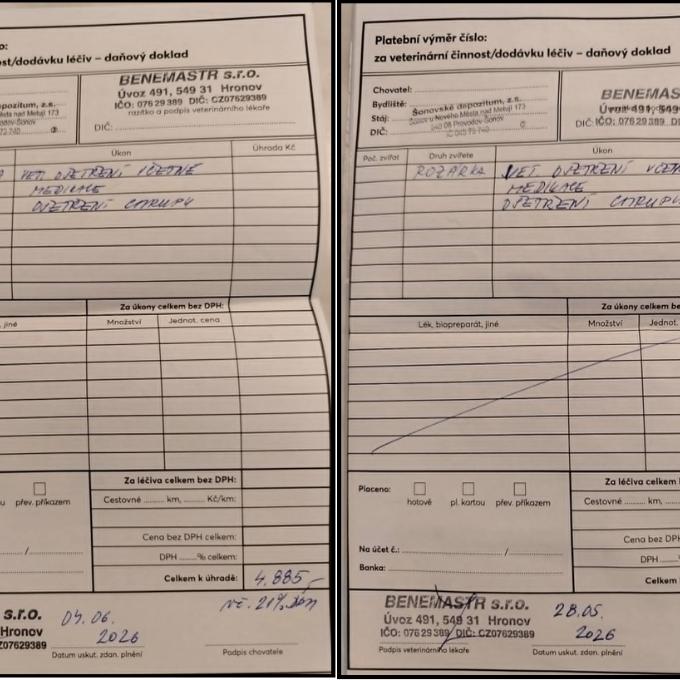 o:
ost/dodávku léčiv – daňový doklad
BENEMASTR s.r.o.
Úvoz 491, 549 31 Hronov
IČO: 076 29 389 DIČ: CZ07629389
razítko a podpis veterinárního lékaře
DIČ:
Úkon
Úhrada Kč
VET. OŠETŘENÍ VČETNĚ
MEDIKACE
OŠETŘENÍ CHRUPU
Za úkony celkem bez DPH:
, jiné
Množství
Jednot. cena
Za léčiva celkem bez DPH:
u
přev. příkazem
Cestovné km, Kč/km:
/
Cena bez DPH celkem:
DPH % celkem:
Celkem k úhradě:
4.885,-
VČ. 21% DPH
s.r.o.
Hronov
Z07629389
04.06.
2026
Datum uskut. zdan. plnění
Podpis chovatele
Platební výměr číslo:
za veterinární činnost/dodávku léčiv – daňový doklad
Chovatel:
Bydliště:
Stáj:
DIČ:
Šonovské depozitum, z.s.
Šonov u Nového Města nad Metují 173
BENEMAS
Úvoz 491, 549
IČO: 076 29 389 D
DIČ:
Poč. zvířat
Druh zvířete
Úkon
ROZÁRKA
VET. OŠETŘENÍ VČET
MEDIKACE
OŠETŘENÍ CHRUPU
Za úkony celkem be
Lék, biopreparát, jiné
Množství
Jednot.
Za léčiva celkem b
Placeno:
hotově
pl. kartou
přev. příkazem
Cestovné km,
Na účet č.: /
Cena bez DPH
DPH
Banka:
Celkem
BENEMASTR s.r.o.
Úvoz 491, 549 31 Hronov
IČO: 076 29 389 DIČ: CZ07629389
Podpis veterinárního lékaře
28.05.
2026
Datum uskut. zdan. plnění